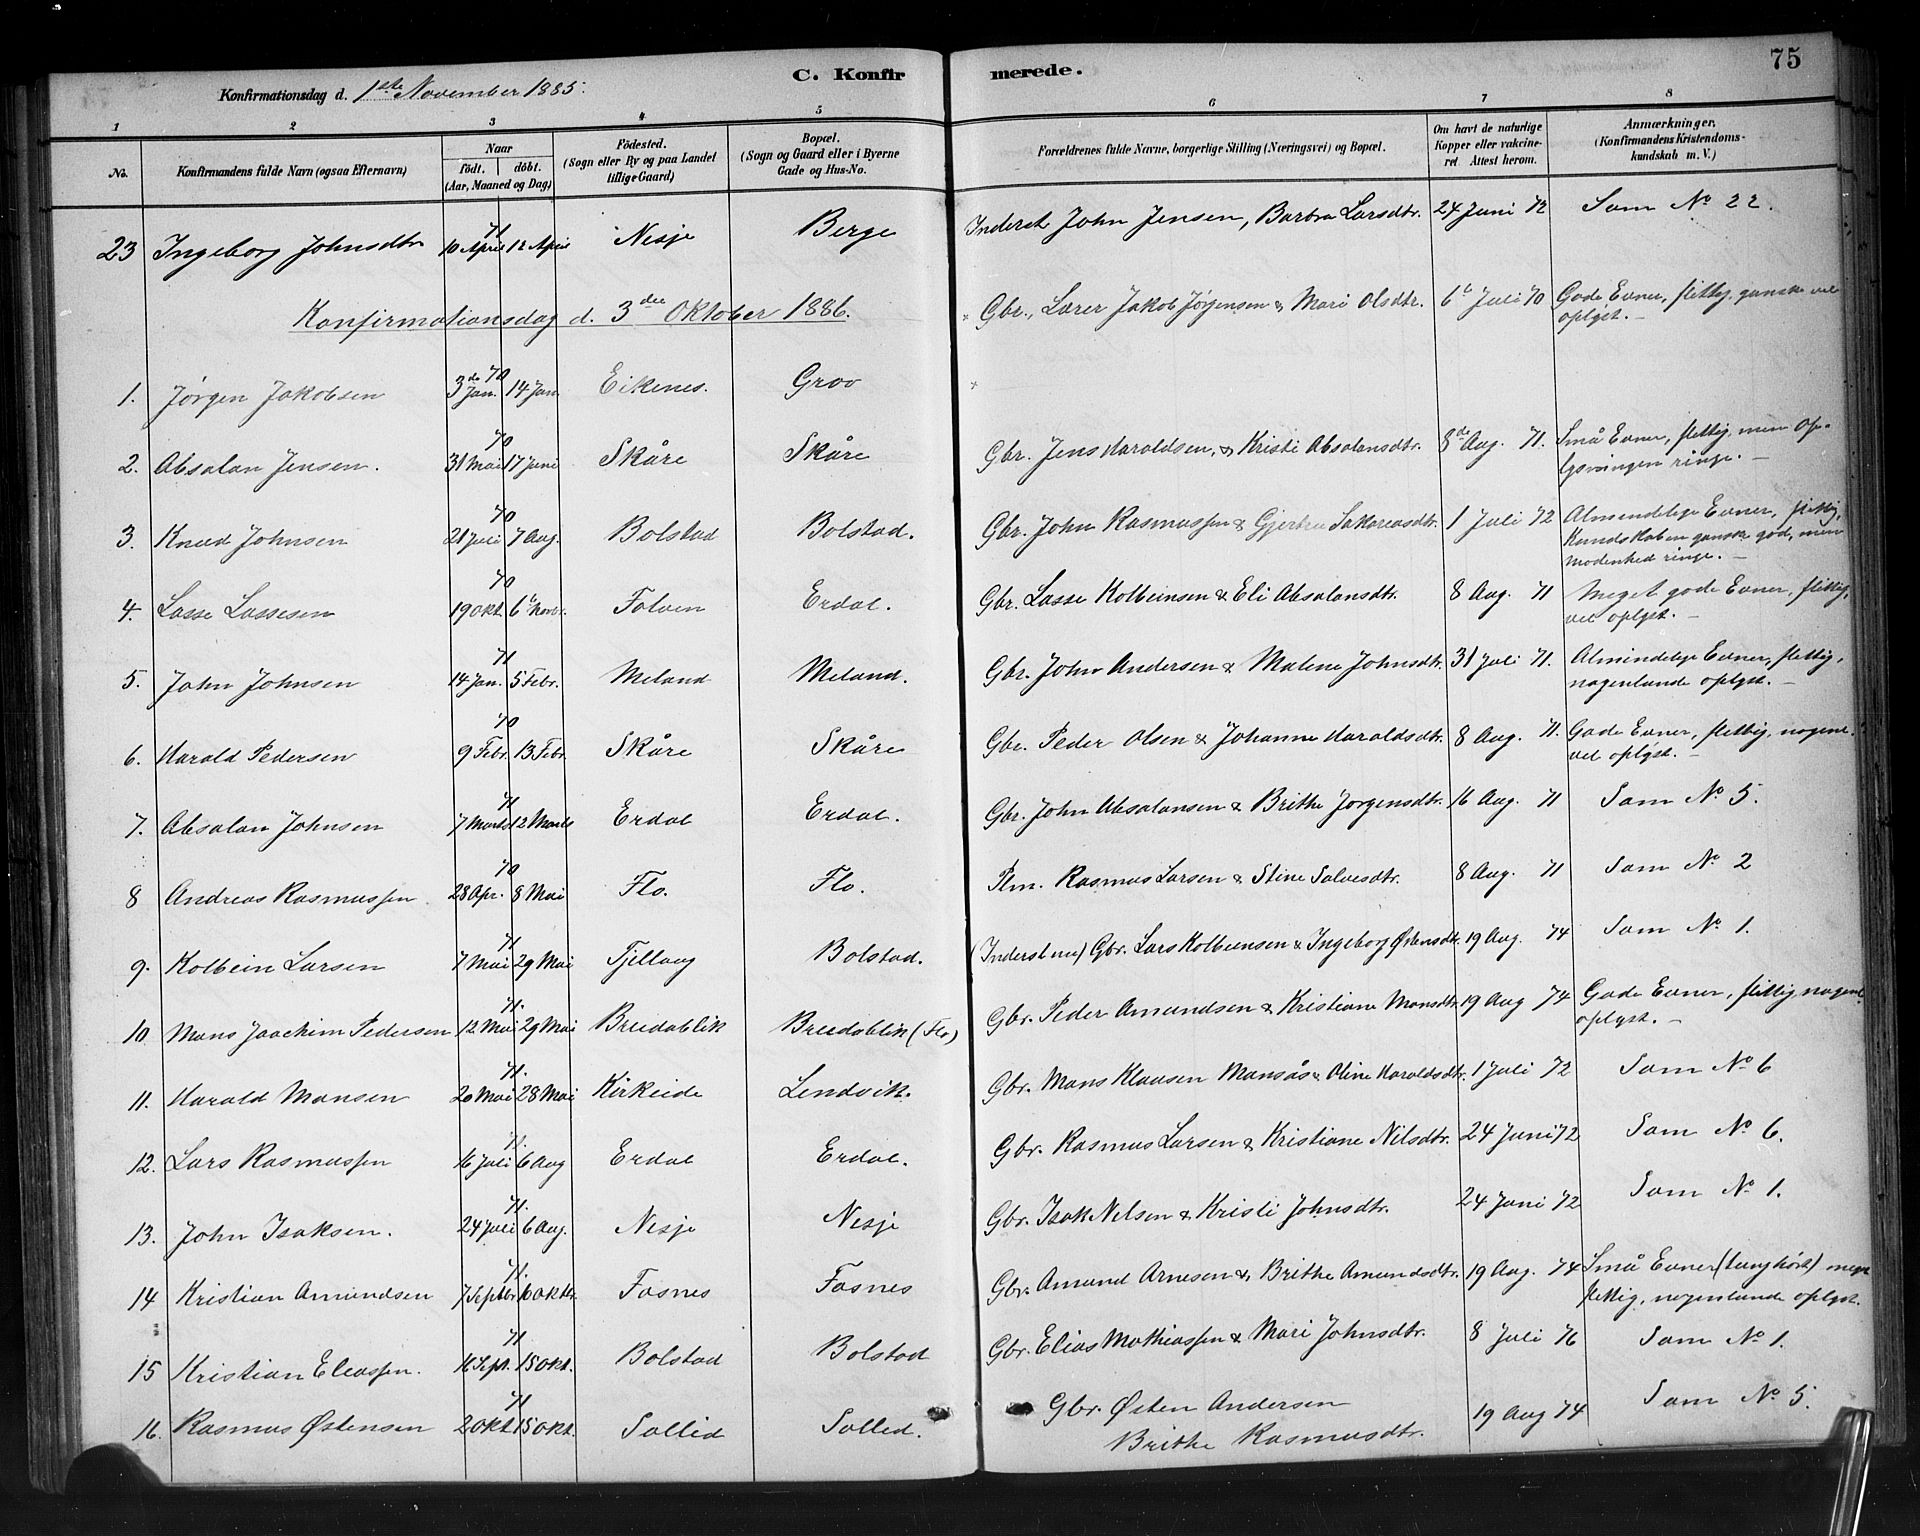 75
C. Konfirmerede.
Konfirmationsdag d. 1ste November 1885.
1 2 3 4 5 6 7 8
No. Konfirmandens fulde Navn (ogsaa Efternavn) Naar födt. döbt. (Aar, Maaned og Dag) Födested. (Sogn eller By og paa Landet tillige Gaard) Bopæl. (Sogn og Gaard eller i Byerne Gade og Hus-No. Forældrenes fulde Navne, borgerlige Stilling (Næringsvei) og Bopæl. Om havt de naturlige Kopper eller vakcineret Attest herom. Anmærkninger, (Konfirmandens Kristendomskundskab m. V.)
23 Ingeborg Johnsdtr 71 10 April 12 April Nesje Berge Inderst John Jensen, Barbra Larsdtr. 24 Juni 72 Som No 22.
Konfirmationsdag d. 3die Oktober 1886.
1. Jørgen Jakobsen 3de 70 Jan. 14 Jan. Eikenes. Grov Gbr., Lærer Jakob Jørgensen & Mari Olsdtr. 6te Juli 70 Gode Evner, flittig, ganske vel
oplyst.
2. Absalon Jensen. 70 31 Mai 17 Juni Skåre Skåre Gbr. Jens Haroldsen, & Kristi Absalonsdtr. 8de Aug. 71. Små Evner, flittig, men Op-
lysningen ringe.
3. Knud Johnsen 70 21 Juli 7 Aug. Bolstad Bolstad. Gbr. John Rasmussen & Gjertru Sakariasdtr. 1 Juli 72 Almindelige Evner, flittig,
Kundskaben ganske god, men
modenhed ringe.
4. Lasse Lassesen 70 19 Okt. 6te Novbr. Folven Erdal. Gbr. Lasse Kolbeinsen & Eli Absalonsdtr. 8 Aug. 71 Meget gode Evner, flittig,
vel oplyst.
5. John Johnsen 71 14 Jan. 5 Febr. Meland Meland. Gbr. John Andersen & Malene Johnsdtr. 31 Juli 71. Almindelige Evner, flittig,
nogenlunde oplyst.
6. Harald Pedersen 70 9 Febr. 13 Febr. Skåre Skåre Gbr. Peder Olsen & Johanne Haroldsdtr. 8 Aug. 71. Gode Evner, flittig, nogenl.
vel oplyst.
7. Absalon Johnsen 71 7 Marts 12 Marts Erdal Erdal. Gbr. John Absalonsen & Brithe Jørgensdtr. 16 Aug. 71 Som No 5.
8 Andreas Rasmussen. 70 28 Apr. 8 Mai Flo. Flo. Plm. Rasmus Larsen & Stine Salvesdtr. 8 Aug. 71 Som No 2
9. Kolbein Larsen 71 7 Mai 29 Mai Tjellaug Bolstad. (Inderst nu) Gbr. Lars Kolbeinsen & Ingeborg Østensdtr. 19 Aug. 74 Som No 1.
10 Mons Joachim Pedersen 71. 12 Mai 29 Mai Breidablik Breidablik (Flo) Gbr. Peder Amundsen & Kristiane Monsdtr. 19 Aug 74 Gode Evner, flittig nogenl.
oplyst.
11. Harald Monsen 71. 20 Mai 28 Mai Kirkeide Lendvik. Gbr. Mons Klausen Monsås & Oline Haroldsdtr. 1 Juli 72 Som No 6
12. Lars Rasmussen 71. 16 Juli 6 Aug Erdal Erdal. Gbr. Rasmus Larsen & Kristiane Nilsdtr. 24 Juni 72 Som No 6.
13. John Isaksen. 71. 24 Juli 6 Aug. Nesje Nesje Gbr. Isak Nilsen & Kristi Johnsdtr. 24 Juni 72 Som No 1.
14 Kristian Amundsen 71. 7 Septbr. Oktbr. Fosnes Fosnes Gbr. Amund Arnesen & Brithe Amundsdtr. 19 Aug. 74 Små Evner (tunghørt) men
flittig, nogenlunde oplyst.
15 Kristian Eliassen. 71 16 Sept. 15 Okt. Bolstad Bolstad Gbr. Elias Mathiassen & Mari Johnsdtr. 8 Juli 76 Som No 1.
16. Rasmus Østensen 71 2 Okt. 15 Okt. Sollid Sollid. Gbr. Østen Andersen 19 Aug 74 Som No 5.
Brithe Rasmusdtr.